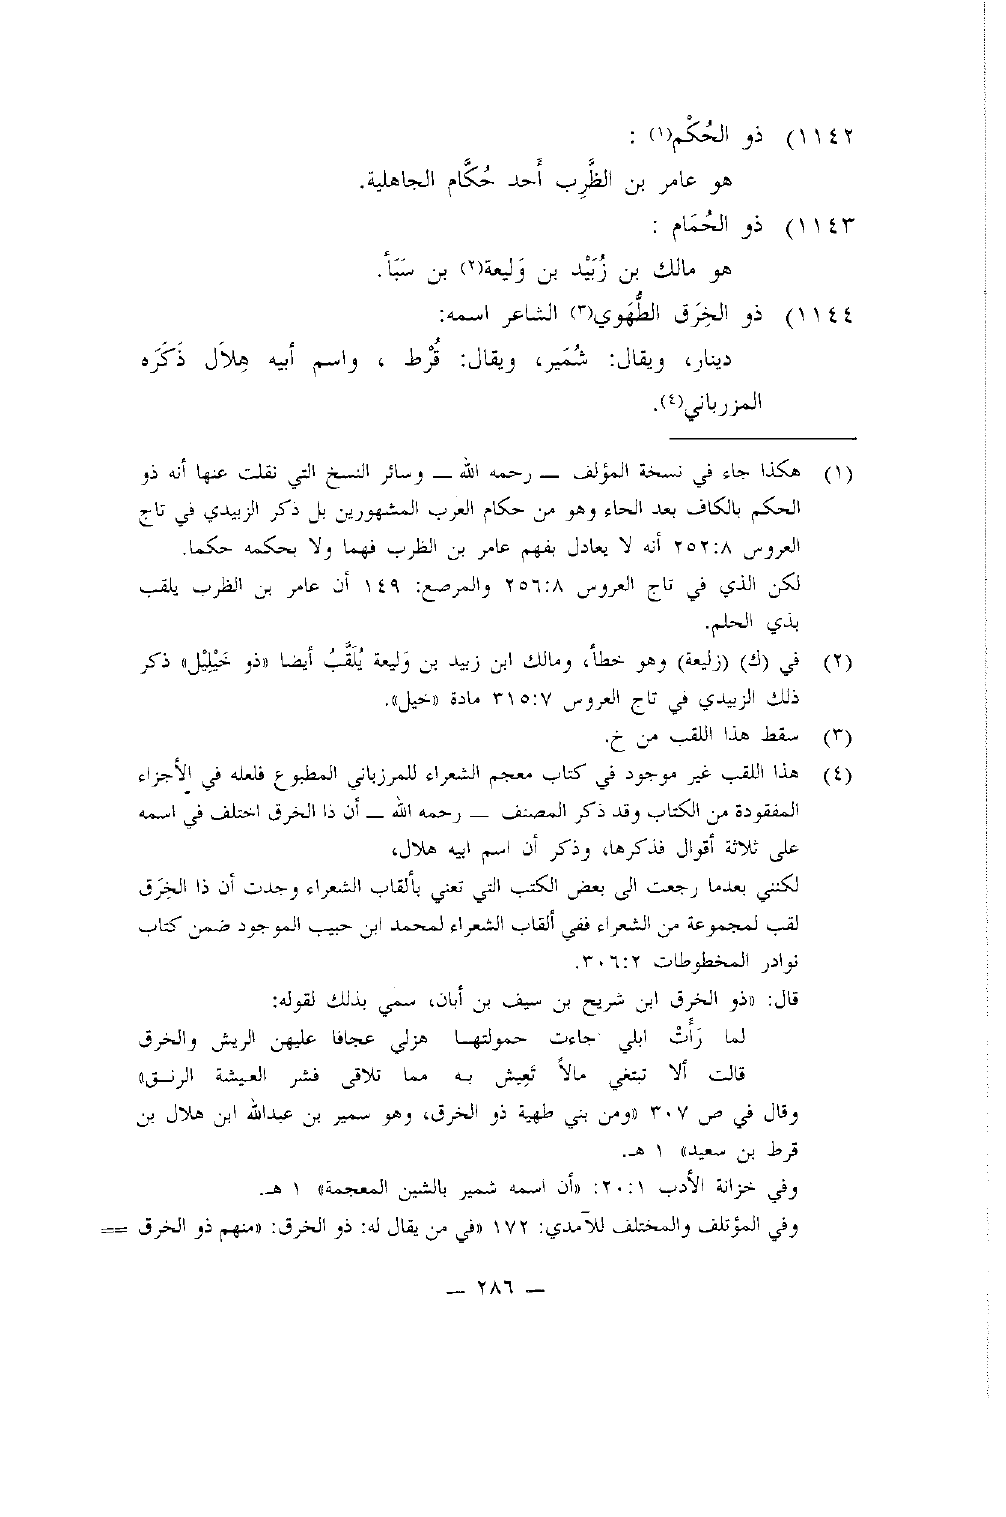 ١١٤٢) ذو الحُكْم(١) :
هو عامر بن الظَّرِب أَحد حُكَّام الجاهلية.
١١٤٣) ذو الحُمَام :
هو مالك بن زُبَيْد بن وَليعة(٢) بن سَبَأ.
١١٤٤) ذو الخِرَق الطُّهَوي(٣) الشاعر اسمه:
دينار، ويقال: شُمَير، ويقال: قُرْط ، واسم أبيه هِلاَل ذَكَرَه
المزرباني(٤).
(١) هكذا جاء في نسخة المؤلف ــ رحمه الله ــ وسائر النسخ التي نقلت عنها أنه ذو
الحكم بالكاف بعد الحاء وهو من حكام العرب المشهورين بل ذكر الزبيدي في تاج
العروس ٢٥٢:٨ أنه لا يعادل بفهم عامر بن الظرب فهما ولا بحكمه حكما.
لكن الذي في تاج العروس ٢٥٦:٨ والمرصع: ١٤٩ أن عامر بن الظرب يلقب
بذي الحلم.
(٢) في (ك) (زليعة) وهو خطأ، ومالك ابن زبيد بن وَليعة يُلَقَّبُ أيضا «ذو خَيْلِيْل» ذكر
ذلك الزبيدي في تاج العروس ٣١٥:٧ مادة «خيل».
(٣) سقط هذا اللقب من خ.
(٤) هذا اللقب غير موجود في كتاب معجم الشعراء للمرزباني المطبوع فلعله في الأجزاء
المفقودة من الكتاب وقد ذكر المصنف ــ رحمه الله ــ أن ذا الخرق اختلف في اسمه
على ثلاثة أقوال فذكرها، وذكر أن اسم ابيه هلال،
لكنني بعدما رجعت الى بعض الكتب التي تعني بألقاب الشعراء وجدت أن ذا الخِرَق
لقب لمجموعة من الشعراء ففي ألقاب الشعراء لمحمد ابن حبيب الموجود ضمن كتاب
نوادر المخطوطات ٣٠٦:٢.
قال: «ذو الخرق ابن شريح بن سيف بن أبان، سمي بذلك لقوله:
لما رَأَتْ ابلي جاءت حمولتهـا هزلي عجافا عليهن الريش والخرق
قالت ألا تبتغي مالاً تَعِيش بـه مما تلاقي فشر العيشة الرنـق»
وقال في ص ٣٠٧ «ومن بني طهية ذو الخرق، وهو سمير بن عبدالله ابن هلال بن
قرط بن سعيد» ١ هـ.
وفي خزانة الأدب ٢٠:١: «أن اسمه شمير بالشين المعجمة» ١ هـ.
وفي المؤتلف والمختلف للآمدي: ١٧٢ «في من يقال له: ذو الخرق: «منهم ذو الخرق ==
ــ ٢٨٦ ــ